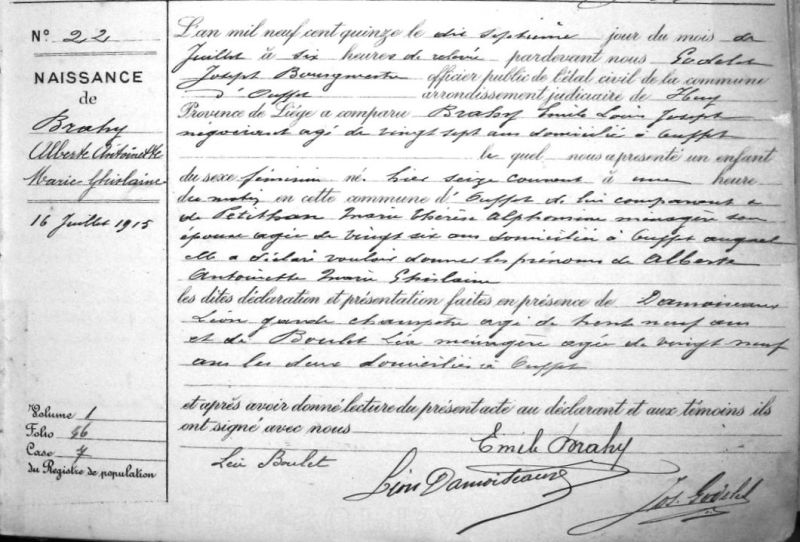 N° 22
NAISSANCE
de
Brahy
Alberte Antoinette
Marie Ghislaine
16 Juillet 1915
Volume 1
Folio 86
Case 7
du Registre de population
L'an mil neuf cent quinze le dix septième jour du mois de
Juillet à six heures de relevée pardevant nous Godelet
Joseph Bourgmestre officier public de l'état civil de la commune
d'Ouffet arrondissement judiciaire de Huy
Province de Liége a comparu Brahy Emile Louis Joseph
négociant agé de vingt sept ans domicilié à Ouffet
le quel nous a présenté un enfant
du sexe féminin né hier seize courant à une heure
du matin en cette commune d'Ouffet de lui comparant &
de Petithan Marie Thérèse Alphonsine ménagère son
épouse agée de vingt six ans domiciliée à Ouffet auquel
elle a déclaré vouloir donner les prénoms de Alberte
Antoinette Marie Ghislaine
les dites déclaration et présentation faites en présence de Damoiseaux
Léon garde champêtre agé de trent neuf ans
et de Boulet Léa ménagère agée de vingt neuf
ans les deux domiciliés à Ouffet
et après avoir donné lecture du présent acte au déclarant et aux témoins ils
ont signé avec nous
Emile Brahy
Léa Boulet
Léon Damoiseaux
Jos. Godelet